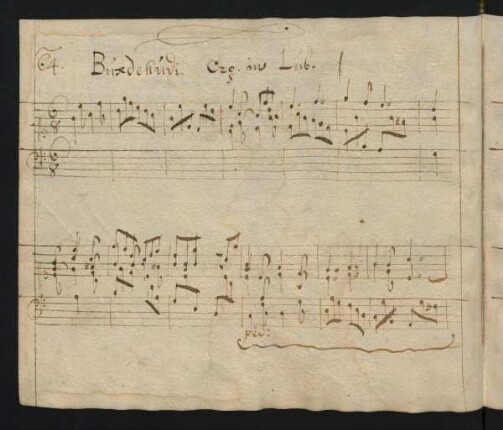 64. Buxdehudi Org. in Lub.
ped: